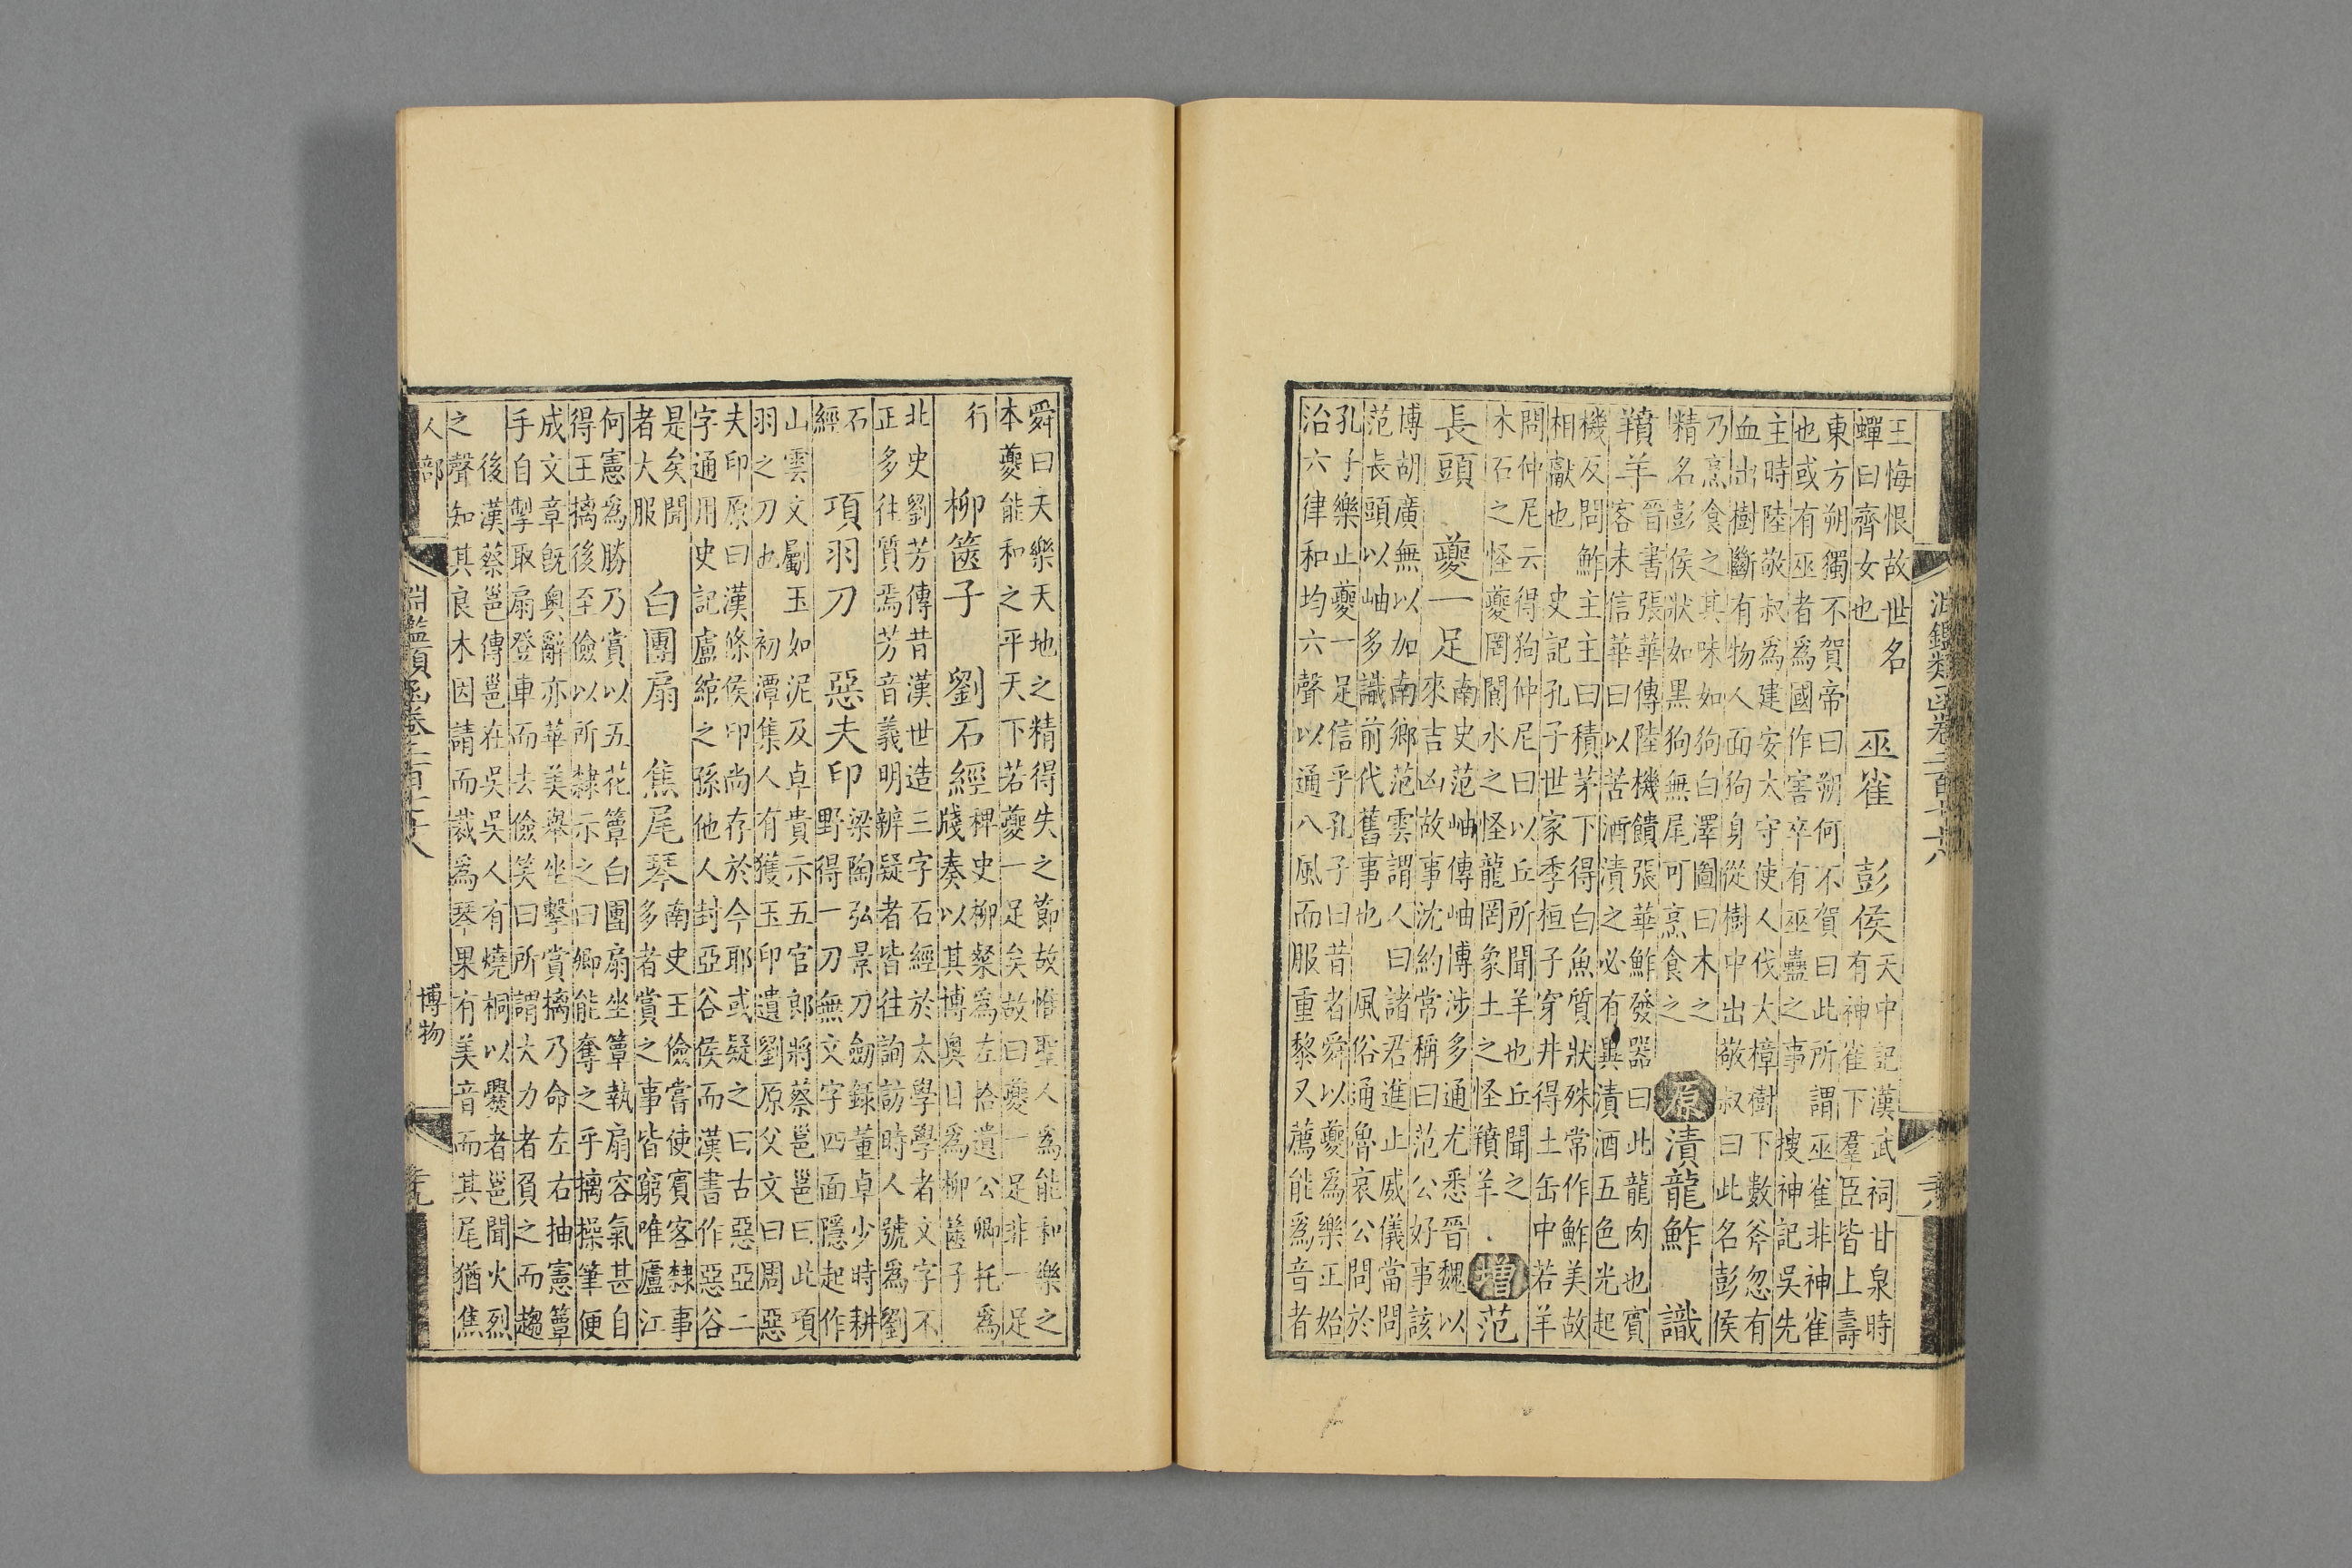 淵鑑類函卷三百二十六
王悔恨故世名
蟬曰齊女也
巫雀　彭侯
天中記漢武祠甘泉時
有神雀下羣臣皆上壽
東方朔獨不賀帝曰朔何不賀曰此所謂巫雀非神雀
也或有巫者爲國作害卒有巫蠱之事　搜神記吳先
主時陸敬叔爲建安太守使人伐大樟樹下數斧忽有
血出樹斷有物人面狗身從樹中出敬叔曰此名彭侯
乃烹食之其味如狗白澤圖曰木之
精名彭侯狀如黑狗無尾可烹食之
原　漬龍鮓　識
羵羊
晉書張華傳陸機饋張華鮓發器曰此龍肉也賓
客未信華曰以苦酒漬之必有異漬酒五色光起
機反問鮓主主曰積茅下得白魚質狀殊常作鮓美故
相獻也　史記孔子世家季桓子穿井得土缶中若羊
問仲尼云得狗仲尼曰以丘所聞羊也丘聞之
木石之怪夔罔閬水之怪龍罔象土之怪羵羊
增　范
長頭　夔一足
南史范岫傳岫博涉多通尤悉晉魏以
來吉凶故事沈約常稱曰范公好事該
博胡廣無以加南鄉范雲謂人曰諸君進止威儀當問
范長頭以岫多識前代舊事也　風俗通魯哀公問於
孔子樂正夔一足信乎孔子曰昔者舜以夔爲樂正始
治六律和均六聲以通八風而服重黎又薦能爲音者
舜曰夫樂天地之精得失之節故惟聖人爲能和樂之
本夔能和之平天下若夔一足矣故曰夔一足非一足
行
柳篋子　劉石經
稗史柳粲爲左拾遺公卿托爲
牋奏以其博奧目爲柳篋子
北史劉芳傳昔漢世造三字石經於太學學者文字不
正多往質焉芳音義明辨疑者皆往詢訪時人號爲劉
石
經
項羽刀　惡夫印
梁陶弘景刀劍錄董卓少時耕
野得一刀無文字四面隱起作
山雲文斸玉如泥及卓貴示五官郎將蔡邕邕曰此項
羽之刀也　初潭集人有獲玉印遺劉原父文曰周惡
夫印原曰漢條侯印尚存於今耶或疑之曰古惡亞二
字通用史記盧綰之孫他人封亞谷侯而漢書作惡谷
是矣聞
者大服
白團扇　焦尾琴
南史王儉嘗使賓客隸事
多者賞之事皆窮唯廬江
何憲爲勝乃賞以五花簟白團扇坐簟執扇容氣甚自
得王摛後至儉以所隸示之曰卿能奪之乎摛操筆便
成文章既奧辭亦華美舉坐擊賞摛乃命左右抽憲簟
手自掣取扇登車而去儉笑曰所謂大力者負之而趨
後漢蔡邕傳邕在吳吳人有燒桐以爨者邕聞火烈
之聲知其良木因請而裁爲琴果有美音而其尾猶焦
人部
淵鑑類函卷三百二十六
博物